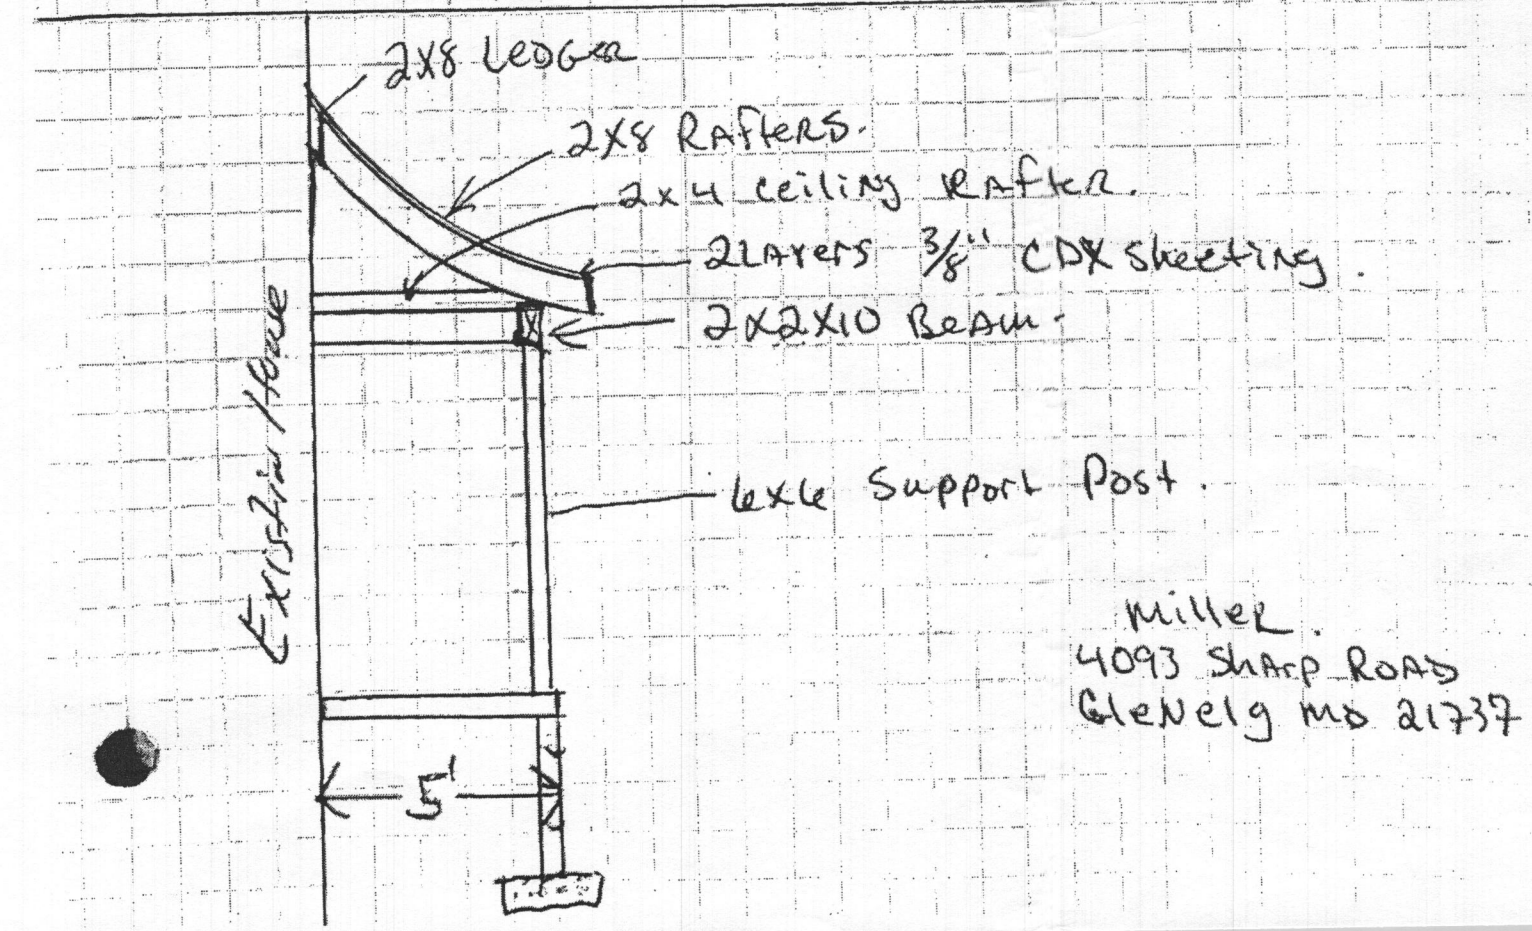 2X8 LEDGER
2X8 RAfteRS.
2x4 CeiliNg RAfteR.
2 LAYERS 3/8" CDX Sheeting.
2X2X10 BeAm.
Existin House
6x6 Support Post.
5'
Miller.
4093 ShArp ROAD
GleNelg MD 21737